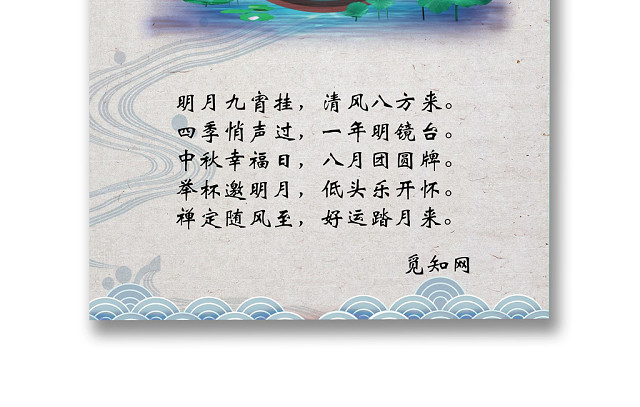 明月九宵挂，清风八方来。
四季悄声过，一年明镜台。
中秋幸福日，八月团圆牌。
举杯邀明月，低头乐开怀。
禅定随风至，好运踏月来。
觅知网